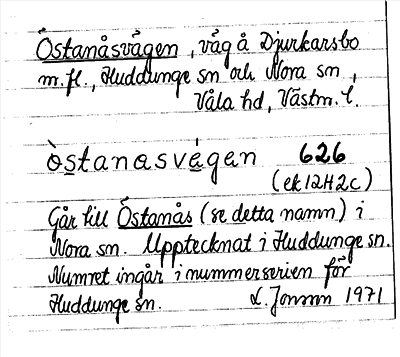 Östanåsvägen, väg å Djurkarsbo
m.fl., Huddunge sn och Nora sn,
Våla hd, Västm. l.
òstanasvégen 626
(ek 12H2c)
Går till Östanås (se detta namn) i
Nora sn. Upptecknat i Huddunge sn.
Numret ingår i nummerserien för
Huddunge sn. L. Jonson 1971